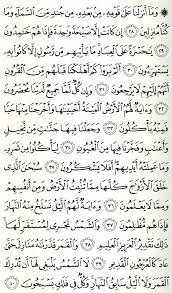 ۞ وَمَآ أَنزَلْنَا عَلَىٰ قَوْمِهِۦ مِنۢ بَعْدِهِۦ مِن جُندٍ مِّنَ ٱلسَّمَآءِ وَمَا
كُنَّا مُنزِلِينَ ٢٨ إِن كَانَتْ إِلَّا صَيْحَةً وَٰحِدَةً فَإِذَا هُمْ خَٰمِدُونَ
٢٩ يَٰحَسْرَةً عَلَى ٱلْعِبَادِ مَا يَأْتِيهِم مِّن رَّسُولٍ إِلَّا كَانُوا۟ بِهِۦ
يَسْتَهْزِءُونَ ٣٠ أَلَمْ يَرَوْا۟ كَمْ أَهْلَكْنَا قَبْلَهُم مِّنَ ٱلْقُرُونِ
أَنَّهُمْ إِلَيْهِمْ لَا يَرْجِعُونَ ٣١ وَإِن كُلٌّ لَّمَّا جَمِيعٌ لَّدَيْنَا مُحْضَرُونَ
٣٢ وَءَايَةٌ لَّهُمُ ٱلْأَرْضُ ٱلْمَيْتَةُ أَحْيَيْنَٰهَا وَأَخْرَجْنَا مِنْهَا حَبًّا
فَمِنْهُ يَأْكُلُونَ ٣٣ وَجَعَلْنَا فِيهَا جَنَّٰتٍ مِّن نَّخِيلٍ
وَأَعْنَٰبٍ وَفَجَّرْنَا فِيهَا مِنَ ٱلْعُيُونِ ٣٤ لِيَأْكُلُوا۟ مِن ثَمَرِهِۦ
وَمَا عَمِلَتْهُ أَيْدِيهِمْ أَفَلَا يَشْكُرُونَ ٣٥ سُبْحَٰنَ ٱلَّذِى
خَلَقَ ٱلْأَزْوَٰجَ كُلَّهَا مِمَّا تُنۢبِتُ ٱلْأَرْضُ وَمِنْ أَنفُسِهِمْ
وَمِمَّا لَا يَعْلَمُونَ ٣٦ وَءَايَةٌ لَّهُمُ ٱلَّيْلُ نَسْلَخُ مِنْهُ ٱلنَّهَارَ
فَإِذَا هُم مُّظْلِمُونَ ٣٧ وَٱلشَّمْسُ تَجْرِى لِمُسْتَقَرٍّ لَّهَا
ذَٰلِكَ تَقْدِيرُ ٱلْعَزِيزِ ٱلْعَلِيمِ ٣٨ وَٱلْقَمَرَ قَدَّرْنَٰهُ مَنَازِلَ حَتَّىٰ
عَادَ كَٱلْعُرْجُونِ ٱلْقَدِيمِ ٣٩ لَا ٱلشَّمْسُ يَنۢبَغِى لَهَآ أَن تُدْرِكَ
ٱلْقَمَرَ وَلَا ٱلَّيْلُ سَابِقُ ٱلنَّهَارِ وَكُلٌّ فِى فَلَكٍ يَسْبَحُونَ ٤٠